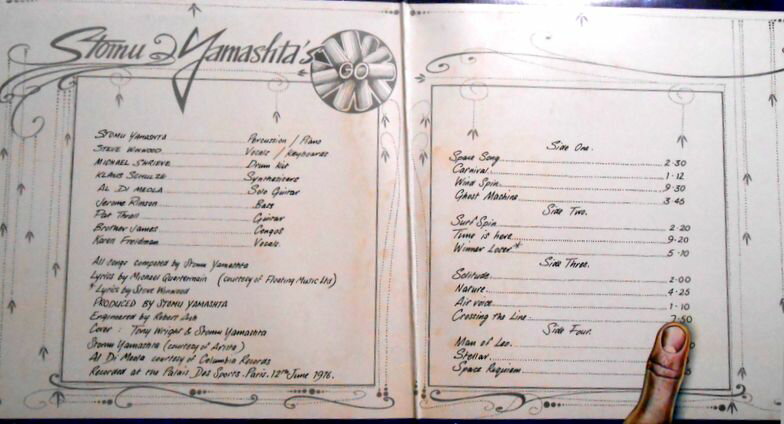 Stomu Yamashta's
GO
Stomu Yamashta Percussion / Piano
Steve Winwood Vocals / Keyboards
Michael Shrieve Drum Kit
Klaus Schulze Synthesisers
Al Di Meola Solo Guitar
Jerome Rimson Bass
Pat Thrall Guitar
Brother James Congas
Karen Freidman Vocals.
All songs composed by Stomu Yamashta
Lyrics by Michael Quartermain (courtesy of Floating Music Ltd)
* Lyrics by Steve Winwood
PRODUCED BY STOMU YAMASHTA
Engineered by Robert Ash
Cover : Tony Wright & Stomu Yamashta
Stomu Yamashta (courtesy of Arista)
Al Di Meola courtesy of Columbia Records
Recorded at the Palais Des Sports. Paris. 12th June 1976.
Side One.
Space Song 2·30
Carnival 1·12
Wind Spin 9·30
Ghost Machine 3·45
Side Two.
Surf Spin 2·20
Time is here 9·20
Winner Loser* 5·10
Side Three.
Solitude 2·00
Nature 4·25
Air voice 1·10
Crossing the Line 7·50
Side Four.
Man of Leo
Stellar
Space Requiem